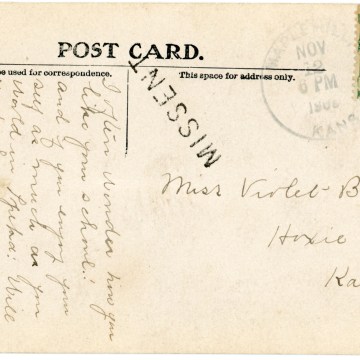 POST CARD.
be used for correspondence.
This space for address only.
MISSENT
NOV
12
6 PM
KANS
I often wonder how you
like your school!
and if you enjoy your
self as much as you
would in Topeka! Will
Miss Violet B
Hoxie
Ka